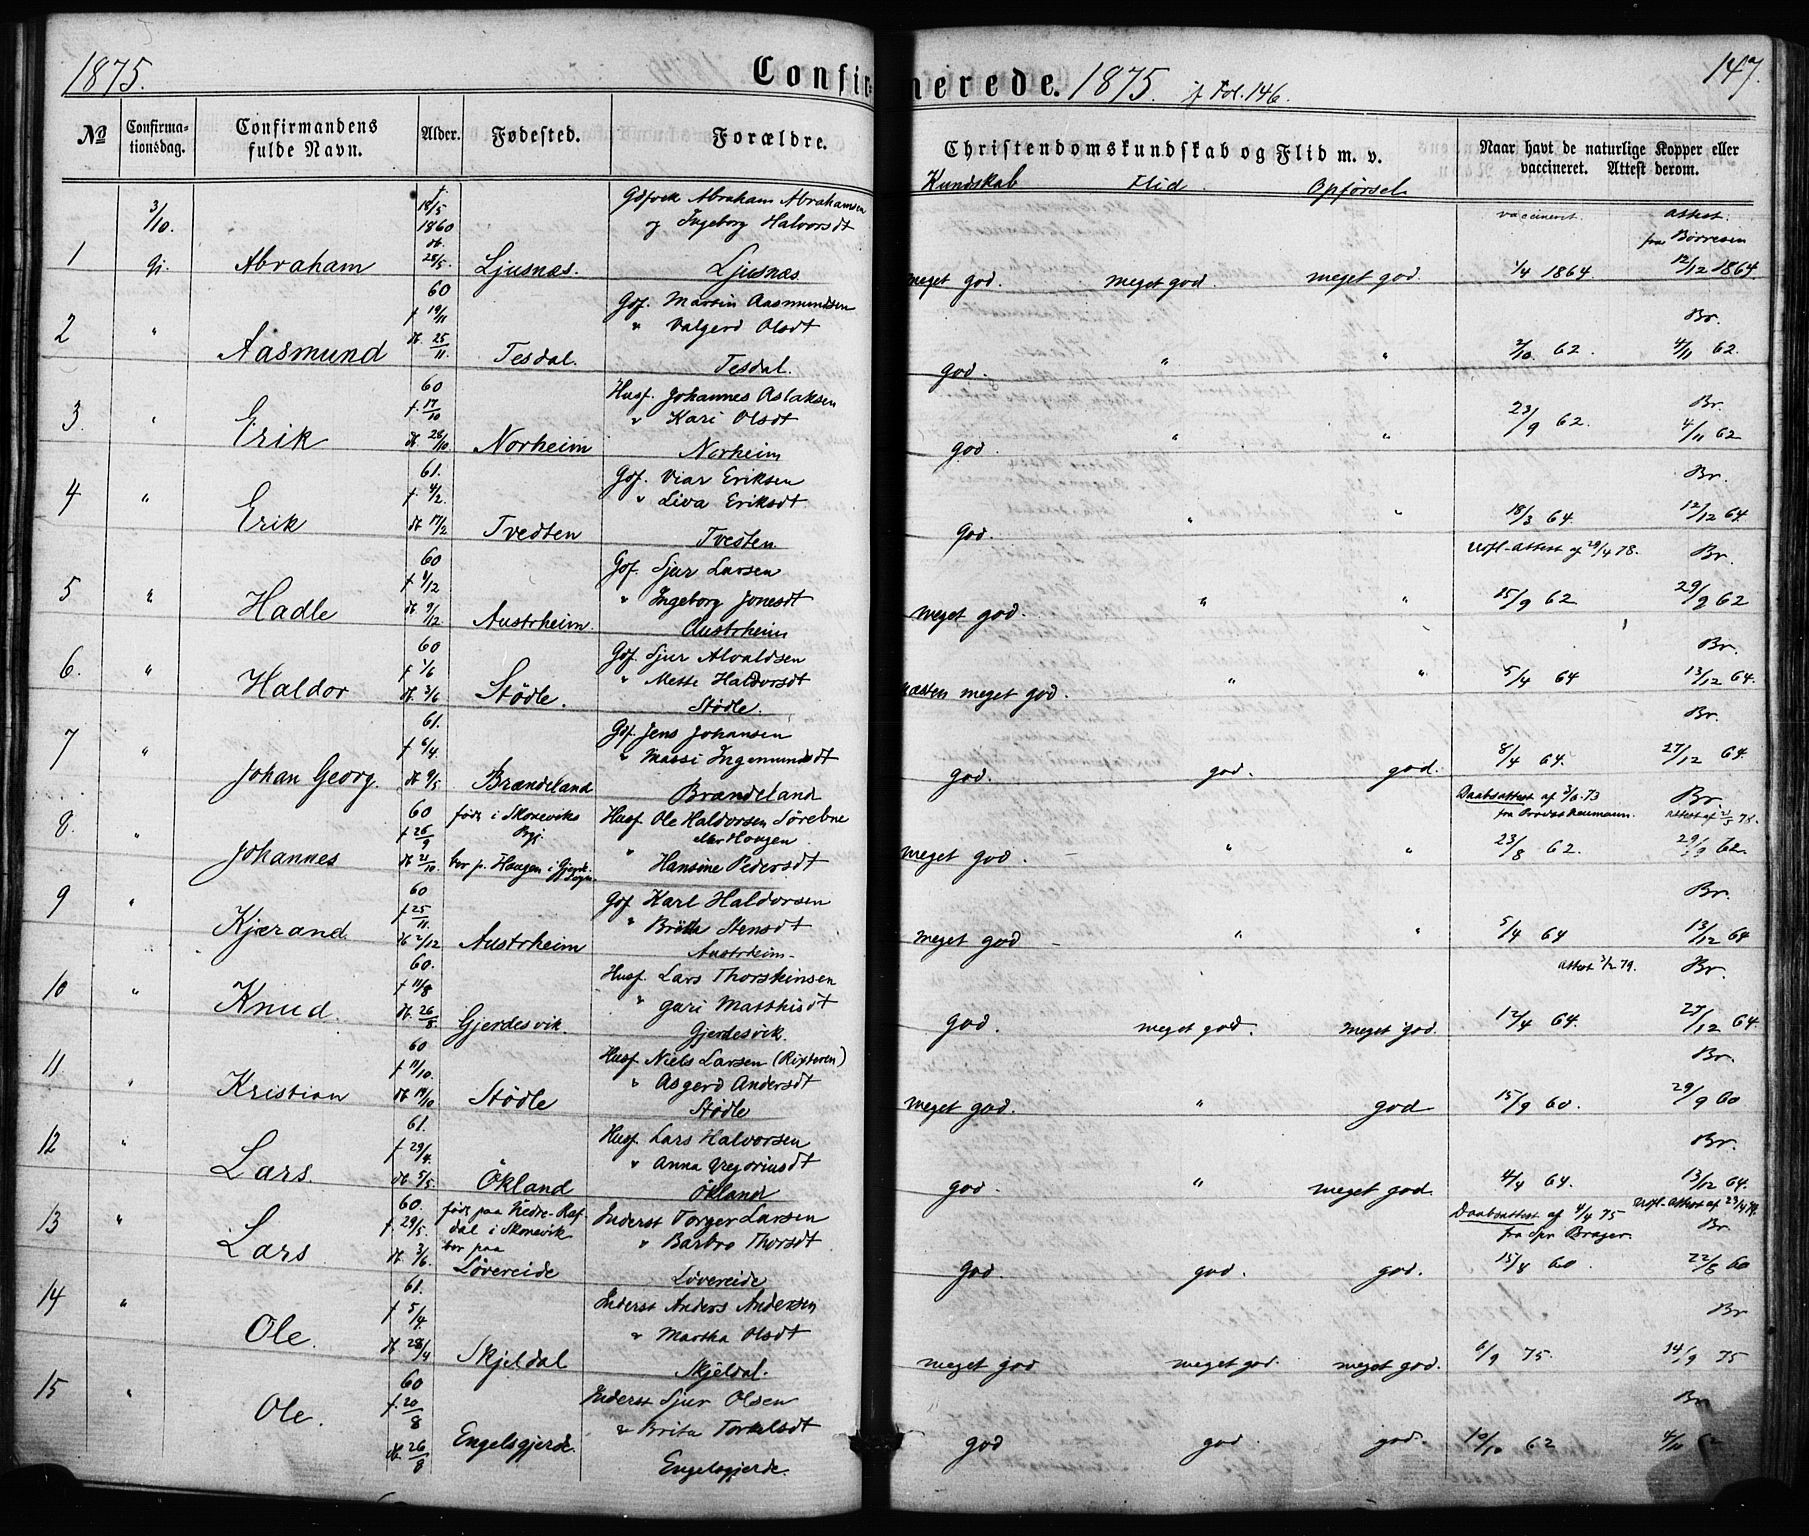 1875.
Confirmerede. 1875. jf Fol. 146.
147.
No
Confirmationsdag.
Confirmandens fulde Navn.
Alder.
Fødested.
Forældre.
Christendomskundskab og Flid m. v.
Naar havt de naturlige Kopper eller vaccineret. Attest derom.
Kundskab Flid Opførsel
vaccineret. attest.
fra Børresen
1 3/10. Gj. Abraham f 18/5 1860 db. 28/5. Ljusnæs.
Abraham Abrahamsen
og Ingeborg Halvorsdt
Ljusnæs
meget god. meget god. meget god. 1/4 1864. 12/12 1864
2 " Aasmund 60 f 19/11 db 25/11. Tesdal.
Gdf. Martin Aasmundsen
" Valgerd Olsdt
Tesdal.
god. " " 2/10. 62. Br. 4/11 62.
3. " Erik 60 f. 17/10 db 28/10. Norheim
Husf. Johannes Aslaksen
" Kari Olsdt
Norheim
god. " " 23/9 62. Br. 4/11 62
4 " Erik 61. f 4/2. db 17/2 Tvedten
Gdf. Viar Eriksen
" Liva Eriksdt
Tvedten.
god. " " 18/3 64. Br. 12/12 64.
5 " Hadle 60 f 4/12 db 9/12 Austrheim.
Gdf. Sjur Larsen
" Ingeborg Jonesdt
Austrheim
attest af 29/4 78.
meget god. " " 15/9 62 Br. 29/9 62
6. " Haldor 60 f 1/6 db 3/6 Stødle.
Gdf. Sjur Alvaldsen
" Mette Haldorsdt
Stødle.
næsten meget god. " " 5/4 64 Br. 13/12 64.
7 " Johan Georg. 61. f 6/4. db 9/5 Brændeland
Gdf. Jens Johansen
" Massi Ingemundsdt
Brændeland
god. god. god. 8/4 64. Br. 27/12 64.
8. " Johannes 60 f 26/9 db 21/10. født i Skoneviks Pgj. bor p. Haugen i Gjerde-Sogn.
Husf. Ole Haldorsen Sørebne
Haugen
" Hansine Pedersdt
Daabsattest af 73
fra Naumann.
meget god. " " 23/8 62. Br. 29/9 62.
9 " Kjærand. 60 f 25/11. db 2/12 Austrheim
Gdf Karl Haldorsen
" Stensdt
Austrheim.
meget god " " 5/4 64 Br. 13/12 64
10 " Knud. 60. f 11/8 db. 26/8. Gjerdesvik.
Husf. Lars Thorstensen
" Gari Matthisdt
Gjerdesvik.
attest 79.
god. meget god. meget god. 12/4 64. Br. 27/12 64.
11 " Kristian 60 f 11/10. db 14/10 Stødle
Husf Niels Larsen (Rixteren)
" Asgerd Andersdt
Stødle
meget god. " god 15/9 60. Br. 29/9 60
12 " Lars. 61. f 29/4. db 5/5. Økland
Husf. Lars Halvorsen
" Anna Gregoriusdt
Økland
god. " meget god. 4/4 64. Br. 13/12 64.
13 " Lars 60. f 29/5. db 3/6. født paa Nedre-Rafdal i Skonevik bor paa Løvereide
Inderst Torger Larsen
" Barbro Thorsdt
Løvereide
Daabsattest af 4/4 75
fra Spr Brager.
god. god. god. 15/8 60. Br 22/8 60
14 " Ole. 61. f 5/4. db 28/4 Skjeldal
Inderst Anders Andersen
" Martha Olsdt
Skjeldal.
meget god meget god. meget god. 6/9 75. Br 14/9 75
15 " Ole. 60 f. 20/8 db. 26/8 Engelsgjerde.
Inderst Sjur Olsen
" Brita Torkelsdt
Engelsgjerde.
god god god. 10/10 62 Br.